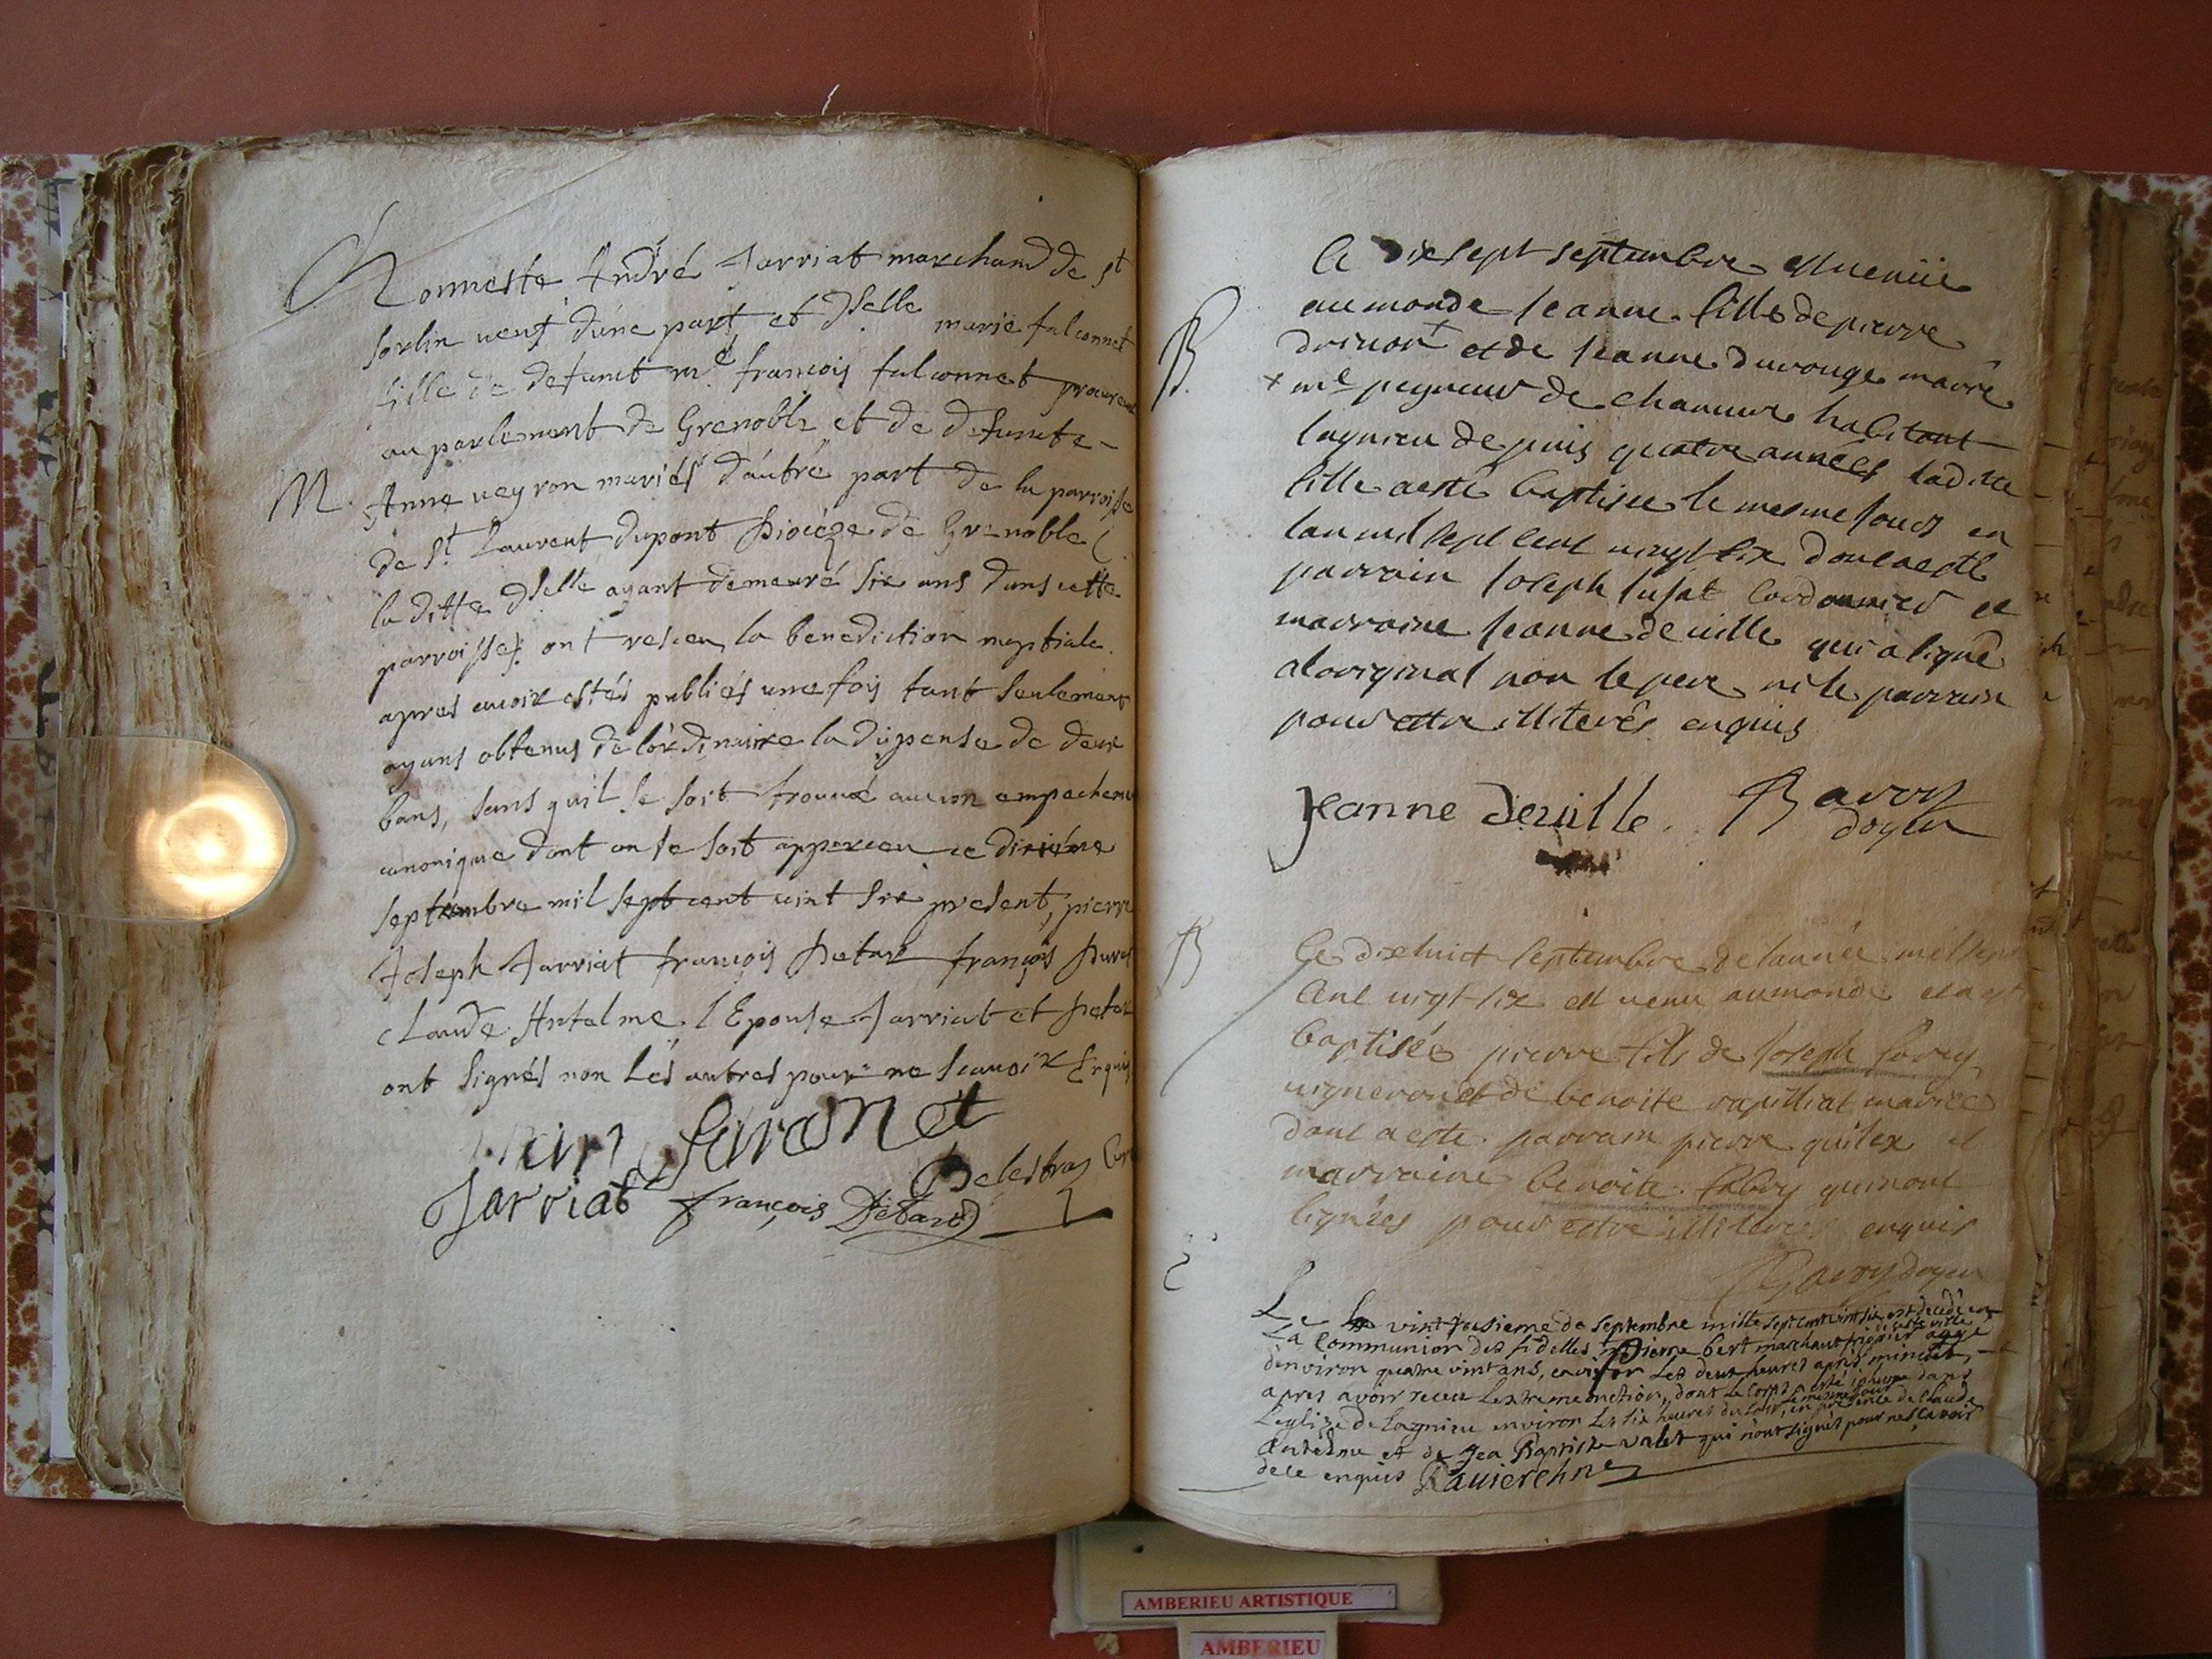 Honneste André Jarriat marchand de st
sorlin veuf d'une part et dselle marie falconnet
fille de defunct me françois falconnet procureur
au parlement de Grenoble et de defuncte
M. Anne veyron mariés d'autre part de la parroisse
de st Laurent dupont Diocéze de Grenoble (
la ditte dselle ayant demeuré six ans dans cette
parroisse) ont resceu la benediction nuptiale
apres avoir estés publiés une fois tant seulement
ayans obtenus de l'ordinaire la dispense de deux
bans, sans quil se soit trouvé aucun empechem
canonique dont on se soit apperceu ce dixiéme
septembre mil sept cent vint six present, pierre
Joseph Jarriat françois Detard françois
Claude Antelme l'Epouse Jarriat et Detard
ont signés non les autres pour ne scavoir Enquis
Jarriat françois Detard
le dixsept septembre est venüe
au monde jeanne fille de pierre
B. et de jeanne durouge mariés
+ me peigneur de chanvre habitant
lagnieu depuis quatre années ladite
fille a esté baptisee le mesme jour en
lan mil sept cent vingt six dont a esté
parrain joseph cordonnier et
marraine jeanne deville qui a signé
a loriginal non le pere ni le parrain
pour estre illiterés enquis
Jeanne deville. Bavoz
doyen
B Le dixhuict septembre de lannée mil sept
cent vigt six est venu au monde et a esté
baptisée pierre fils de joseph
vigneron et de benoite mariés
dont a esté parrain pierre et
marraine benoite qui nont
signées pour estre illiterés enquis
Bavoz doyen
Le vint troisieme de septembre mille sept cent vint six est décédé en
La Communion des fidelles Pierre bert marchant fripier de cette ville aagé
denviron quatre vint ans, environ les deux heures apres minuit,
apres avoir receu lextreme onction, dont le corps a esté inhumé dans
leglize de Lagnieu environ les six heures du soir le mesme jour, en presence de Claude
Antelme et de Jea Baptiste valet qui n'ont signés pour ne sçavoir
de ce enquis
AMBERIEU ARTISTIQUE
AMBERIEU